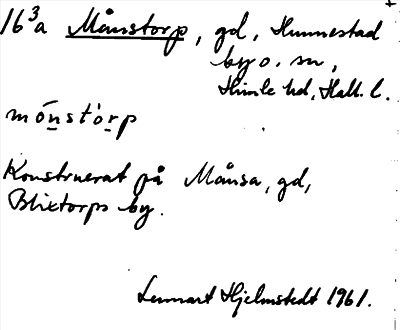 16³a Månstorp, gd, Hunnestad
by o. sn,
Himle hd, Hall. l.
mó̱nstòrp
Konstruerat på Månsa, gd,
Blixtorps by.
Lennart Hjelmstedt 1961.